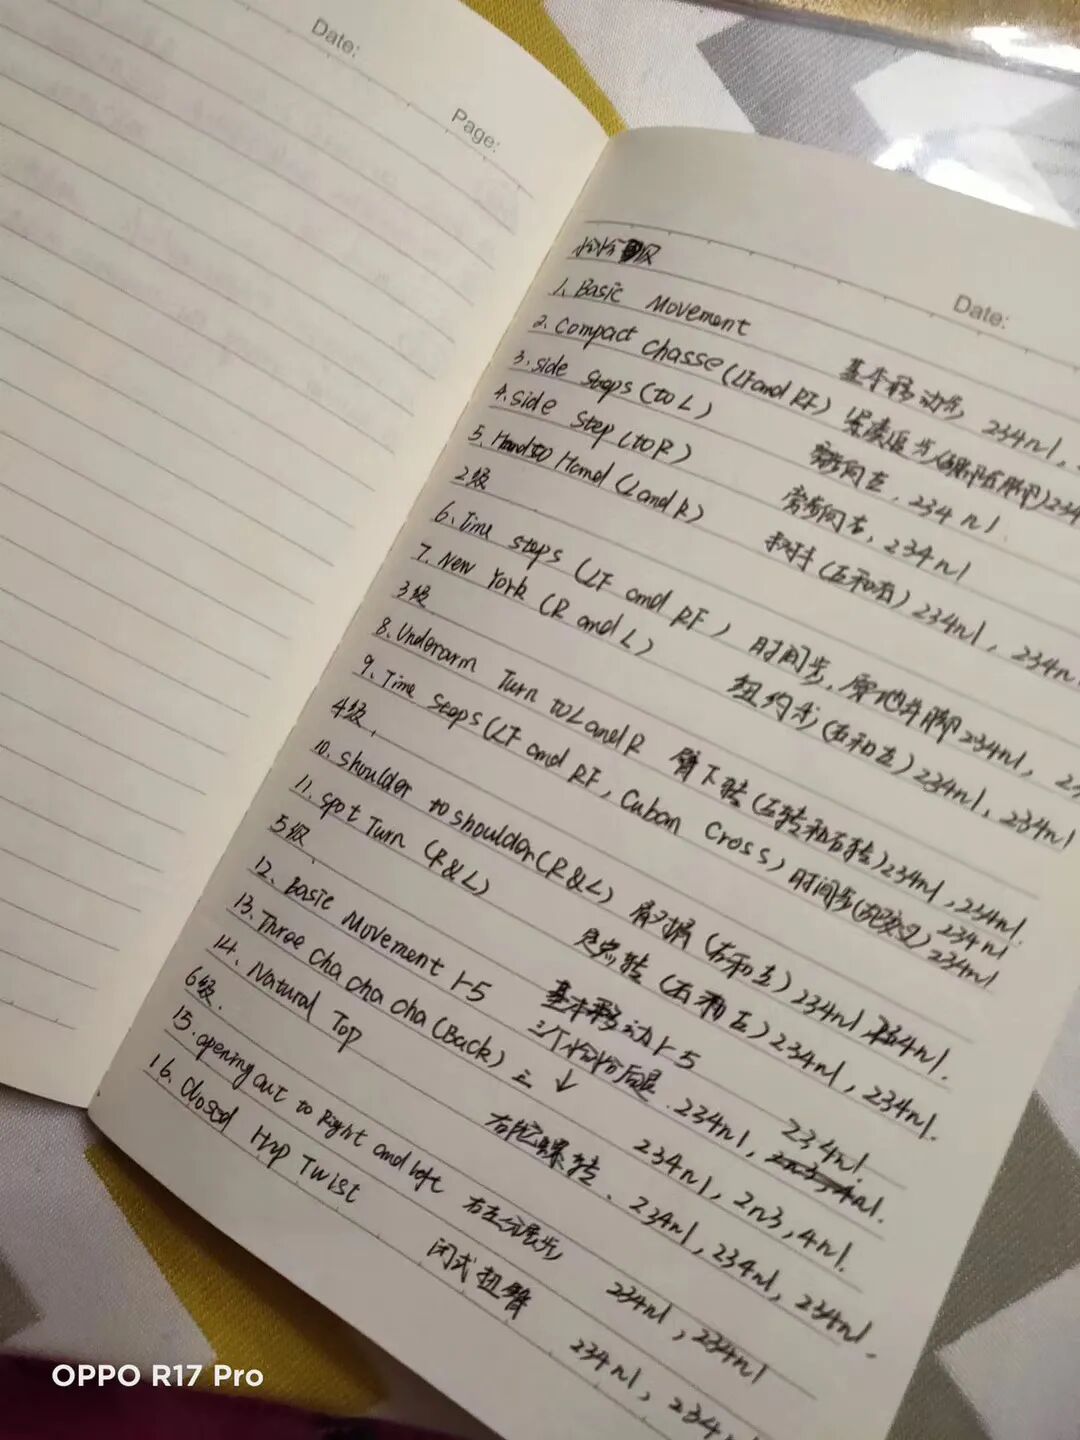 Date:
Page:
Date:
恰恰 级
1. Basic Movement 基本移动步, 234n1,
2. Compact Chasse (LF and RF) 紧凑追步 234
3. side steps (to L) 向左, 234n1.
4. side step (to R) 旁步向右, 234n1
5. Hand to Hand (L and R) 手对手 (左和右) 234n1, 234n
2级
6. Time steps (LF and RF) 时间步, 原地并脚 234n1,
7. New York (R and L) 纽约步 (右和左) 234n1, 234n1
3级
8. Underarm Turn to L and R 臂下转 (左转和右转) 234n1, 234n1.
9. Time Steps (LF and RF, Cuban Cross) 时间步 (古巴交叉) 234n1 234n1
4级,
10. shoulder to shoulder (R&L) 肩对肩 (右和左) 234n1, 234n1.
11. spot Turn (R&L) 定点转 (右和左) 234n1, 234n1.
5级
12. Basic Movement 1-5 基本移动 1-5 234n1.
13. Three cha cha cha (Back) 三个恰恰后退. 234n1, 2n3, 4n1.
三 ↓ 234n1, 2n3, 4n1.
14. Natural Top 右陀螺转. 234n1, 234n1, 234n1.
6级.
15. opening out to Right and left 右左分展步, 234n1, 234n1
16. Closed Hip Twist 闭式扭臀 234n1, 234n
OPPO R17 Pro